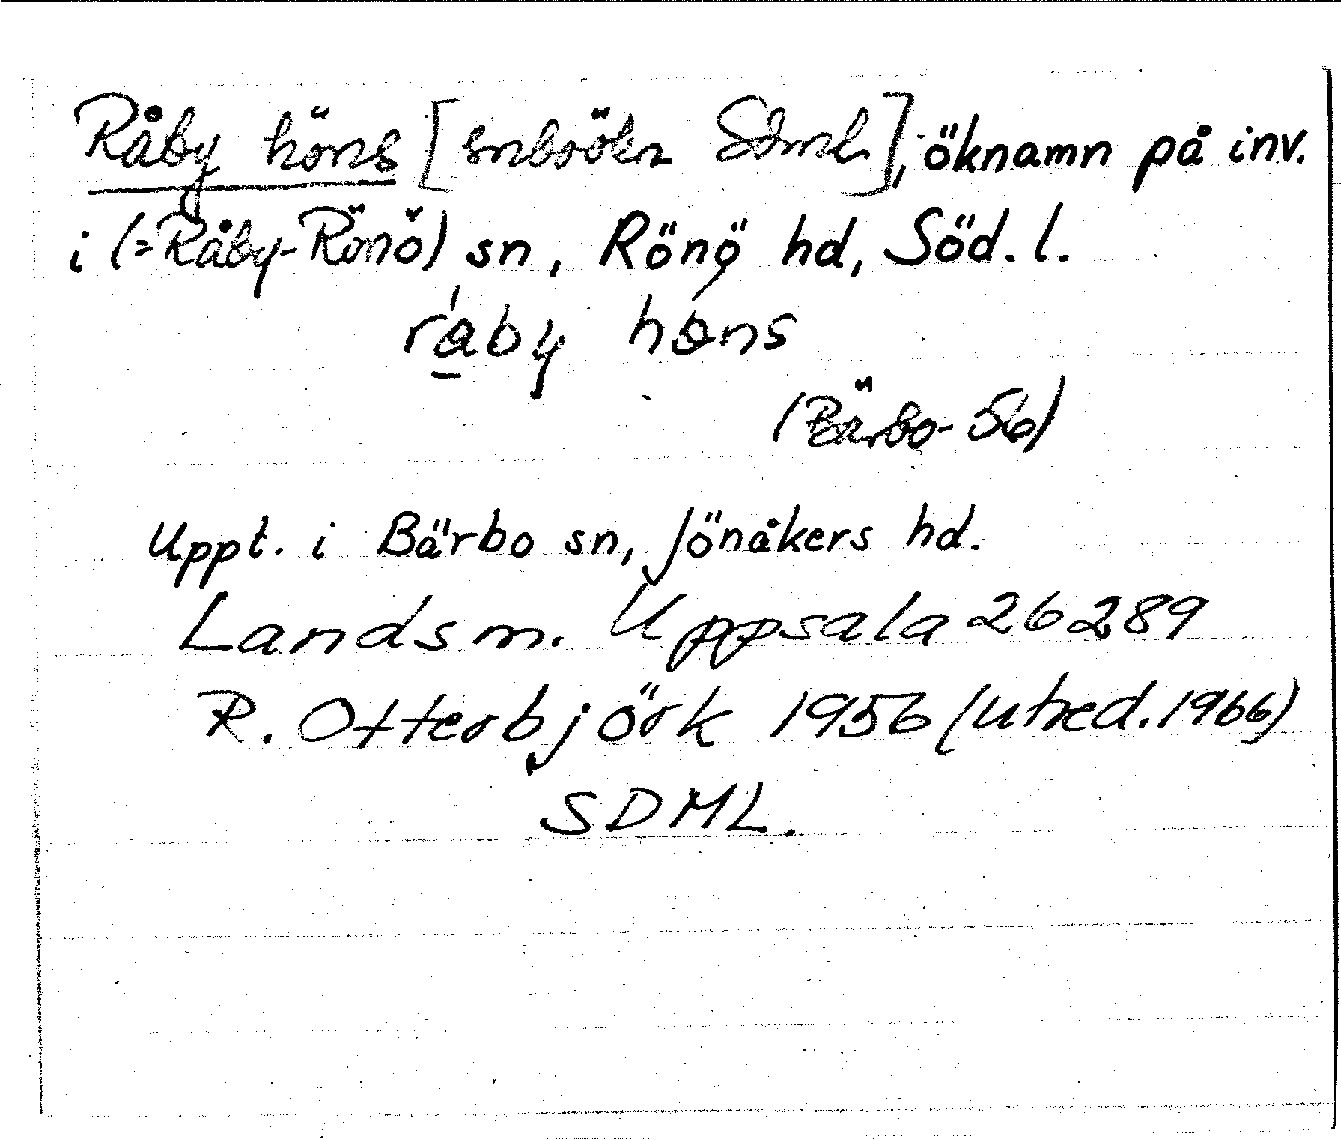 Råby höns [snbsökn Sdml.], öknamn på inv.
i (=Råby-Rönö) sn, Rönö hd, Söd. l.
råby höns
(Bärbo-56)
Uppt. i Bärbo sn, Jönåkers hd.
Landsm. Uppsala 26289
R. Otterbjörk 1956 (utred. 1966)
SDML.